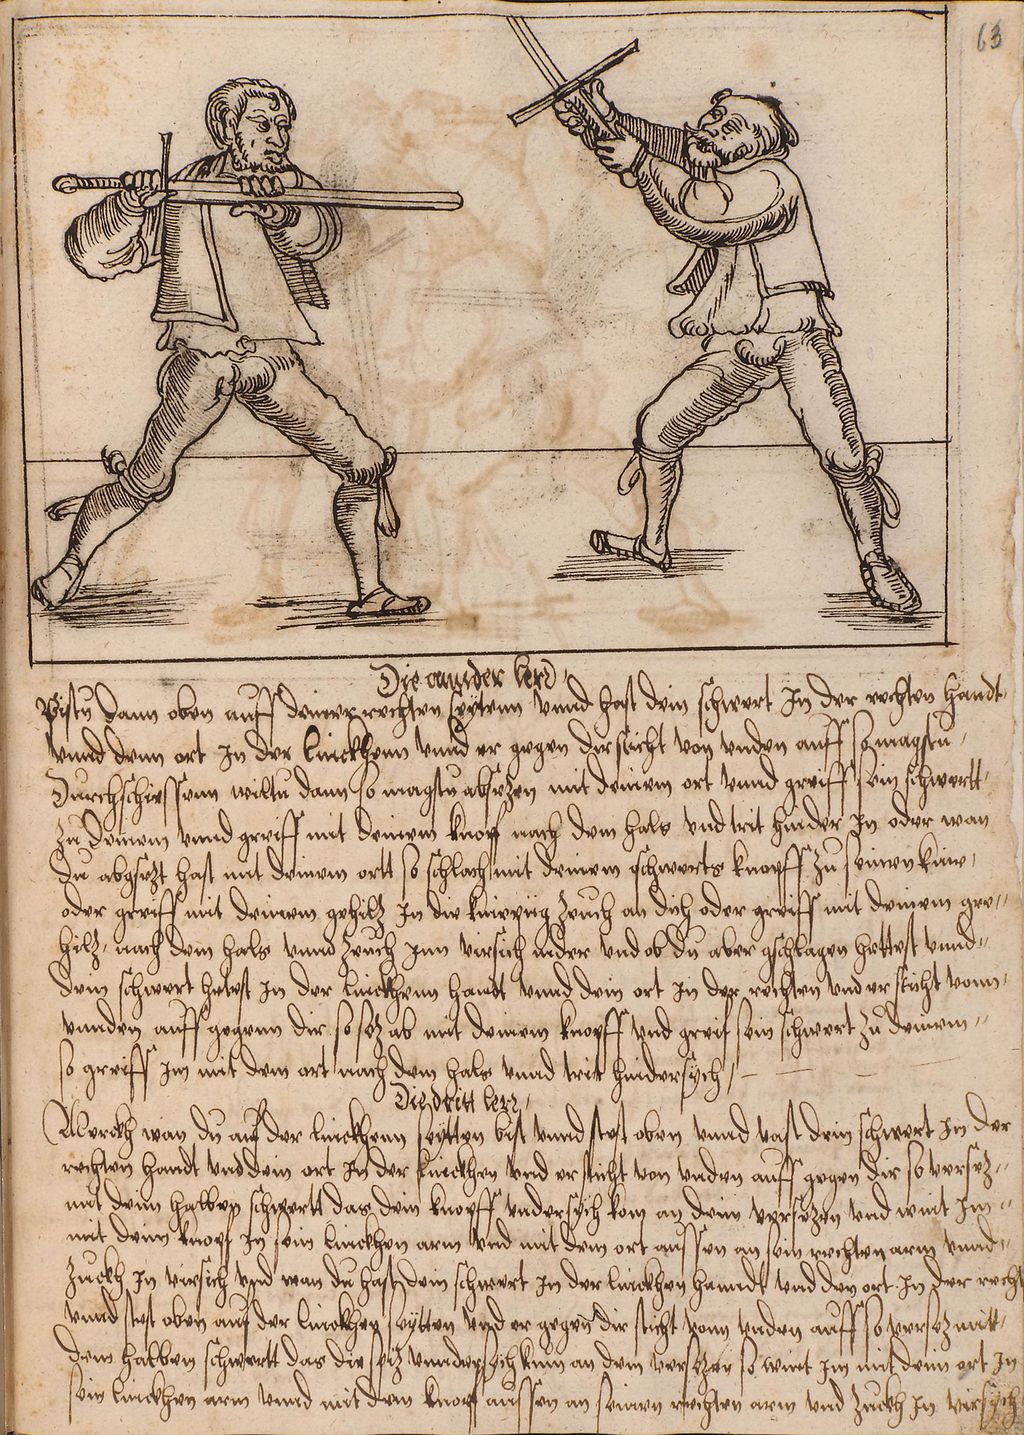 63
Die annder lere
Bistu dann oben auff deiner rechten seytenn vnnd hast dein schwert In der rechten handt
vnnd dein ort In der linckhenn vnnd er gegen dir sticht von vnden auff so magstu
Durchschiessenn wiltu dann so magstu absetzen mit deinem ort vnnd greiff sein schwertt
zu deinem vnnd greiff mit deinem knopf nach dem hals vnd trit hinder In oder wan
du abgsetzt hast mit deinem ortt so schlach mit deinem schwerts knopff zu seinen knie
oder greiff mit deinem gehiltz In die knie zuch an dich oder greiff mit deinem gee-
hiltz nach dem hals vnnd zeuch Inn virsich nider vnd ob du aber gschlagen hettest vnnd
dein schwert hetest In der linckhenn handt vnnd dein ort In der rechten vnd er sticht vonn
vnnden auff gegenn dir so setz ab mit deinem knopff vnd greif sein schwert zu deinem
so greiff Im mit dem ort nach dem hals vnnd trit hindersych
Die dritt lere
Merckh wan du auf der linckhenn seytten bist vnnd stest oben vnnd vast dein schwert In der
rechten handt vnd dein ort In der linckhen vnd er sticht von vnden auff gegen dir so versetz
mit deim halben schwertt das dein knopff vndersych kom an deim versetzen vnd wint Im
mit deim knopf In sein linckhen arm vnd mit dem ort aussen an sein rechten arm vnnd
zuckh In virsich vnd wan du hast dein schwert In der linckhen hanndt vnd den ort In der recht
vnnd stest oben auf der linckhen seytten vnd er gegen dir sticht vonn vnden auff so versetz mitt
dem halben schwertt das die spitz vnndersych kum an dem versetzen so wint Im mit deim ort In
sein linckhen arm vnnd mit dem knopf aussen an seinen rechten arm vnd zuckh In virsych